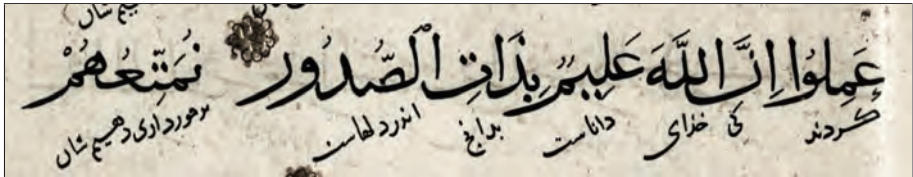 عَمِلُوا اِنَّ اللَّهَ عَلِيمٌ بِذَاتِ الصُّدُورِ نُمَتِّعُهُمْ
کردند کی خذای داناست بدانچ اندر دلهاست برخورداری دهیم شان